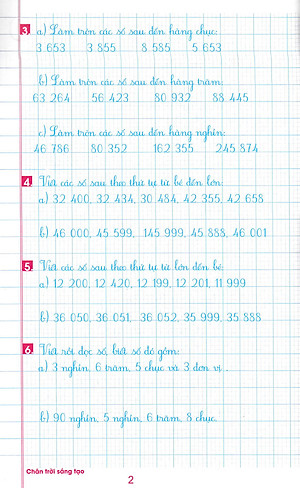 3 a) Làm tròn các số sau đến hàng chục:
3 653 3 855 8 585 5 653
b) Làm tròn các số sau đến hàng trăm:
63 264 56 423 80 932 88 445
c) Làm tròn các số sau đến hàng nghìn:
46 786 80 352 162 355 245 874
4 Viết các số sau theo thứ tự từ bé đến lớn:
a) 32 400, 32 434, 30 484, 42 355, 42 658
b) 46 000, 45 599, 145 999, 45 888, 46 001
5 Viết các số sau theo thứ tự từ lớn đến bé:
a) 12 200, 12 420, 12 199, 12 201, 11 999
b) 36 050, 36 051, 36 052, 35 999, 35 888
6 Viết rồi đọc số, biết số đó gồm:
a) 3 nghìn, 6 trăm, 5 chục và 3 đơn vị.
b) 90 nghìn, 5 nghìn, 6 trăm, 8 chục.
Chân trời sáng tạo
2